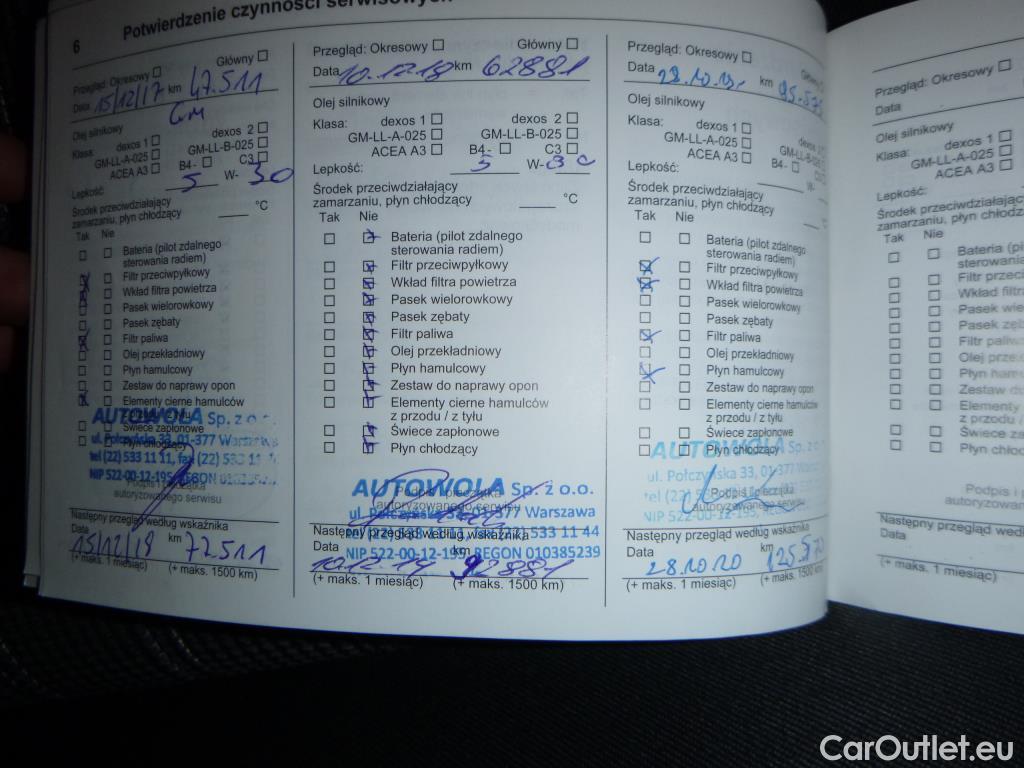 6 Potwierdzenie czynności serwisowych
Przegląd: Okresowy Główny
Data 15/12/17 km 47.511
GM
Olej silnikowy
Klasa: dexos 1 dexos 2
GM-LL-A-025 GM-LL-B-025
ACEA A3 B4- C3
Lepkość: 5 W- 30
Środek przeciwdziałający
zamarzaniu, płyn chłodzący °C
Tak Nie
Bateria (pilot zdalnego
sterowania radiem)
Filtr przeciwpyłkowy
Wkład filtra powietrza
Pasek wielorowkowy
Pasek zębaty
Filtr paliwa
Olej przekładniowy
Płyn hamulcowy
Zestaw do naprawy opon
Elementy cierne hamulców
z przodu / z tyłu
Świece zapłonowe
Płyn chłodzący
AUTOWOLA Sp. z o.o.
ul. Połczyńska 33, 01-377 Warszawa
tel (22) 533 11 11, fax (22) 533
NIP 522-00-12-195, REGON
Podpis i pieczątka
autoryzowanego serwisu
Następny przegląd według wskaźnika
Data 15/12/18 km 72.511
(+ maks. 1 miesiąc) (+ maks. 1500 km)
Przegląd: Okresowy Główny
Data 10.12.18 km 62881
Olej silnikowy
Klasa: dexos 1 dexos 2
GM-LL-A-025 GM-LL-B-025
ACEA A3 B4- C3
Lepkość: 5 W- 30
Środek przeciwdziałający
zamarzaniu, płyn chłodzący °C
Tak Nie
Bateria (pilot zdalnego
sterowania radiem)
Filtr przeciwpyłkowy
Wkład filtra powietrza
Pasek wielorowkowy
Pasek zębaty
Filtr paliwa
Olej przekładniowy
Płyn hamulcowy
Zestaw do naprawy opon
Elementy cierne hamulców
z przodu / z tyłu
Świece zapłonowe
Płyn chłodzący
AUTOWOLA Sp. z o.o.
Podpis i pieczątka
autoryzowanego serwisu
ul. Połczyńska 33, 01-377 Warszawa
533 11 44
Następny przegląd według wskaźnika
NIP 522-00-12-195, REGON 010385239
Data 10.12.19 km 92881
(+ maks. 1 miesiąc) (+ maks. 1500 km)
Przegląd: Okresowy Główny
Data 28.10.19r km 95.573
Olej silnikowy
Klasa: dexos 1 dexos 2
GM-LL-A-025 GM-LL-B-025
ACEA A3 B4- C3
Lepkość: W-
Środek przeciwdziałający
zamarzaniu, płyn chłodzący °C
Tak Nie
Bateria (pilot zdalnego
sterowania radiem)
Filtr przeciwpyłkowy
Wkład filtra powietrza
Pasek wielorowkowy
Pasek zębaty
Filtr paliwa
Olej przekładniowy
Płyn hamulcowy
Zestaw do naprawy opon
Elementy cierne hamulców
z przodu / z tyłu
Świece zapłonowe
Płyn chłodzący
AUTOWOLA Sp. z o.o.
ul. Połczyńska 33, 01-377 Warszawa
tel (22)
Podpis i pieczątka
autoryzowanego serwisu
NIP 522-00-12-195,
Następny przegląd według wskaźnika
Data 28.10.20 km 125.573
(+ maks. 1 miesiąc) (+ maks. 1500 km)
Przegląd: Okresowy
Data
Olej silnikowy
Klasa: dexos 1
GM-LL-A-025
ACEA A3
Lepkość:
Środek przeciwdziałając
zamarzaniu, płyn chłodz
Tak Nie
Bateria (pilot
sterowania
Filtr przeciw
Wkład filtra
Pasek wielo
Pasek zęb
Filtr paliw
Olej prze
Płyn ham
Zestaw do
Elementy
z przodu /
Świece za
Płyn chło
Podpis i p
autoryzowan
Następny przegląd wed
Data
(+ maks. 1 miesiąc)
CarOutlet.eu